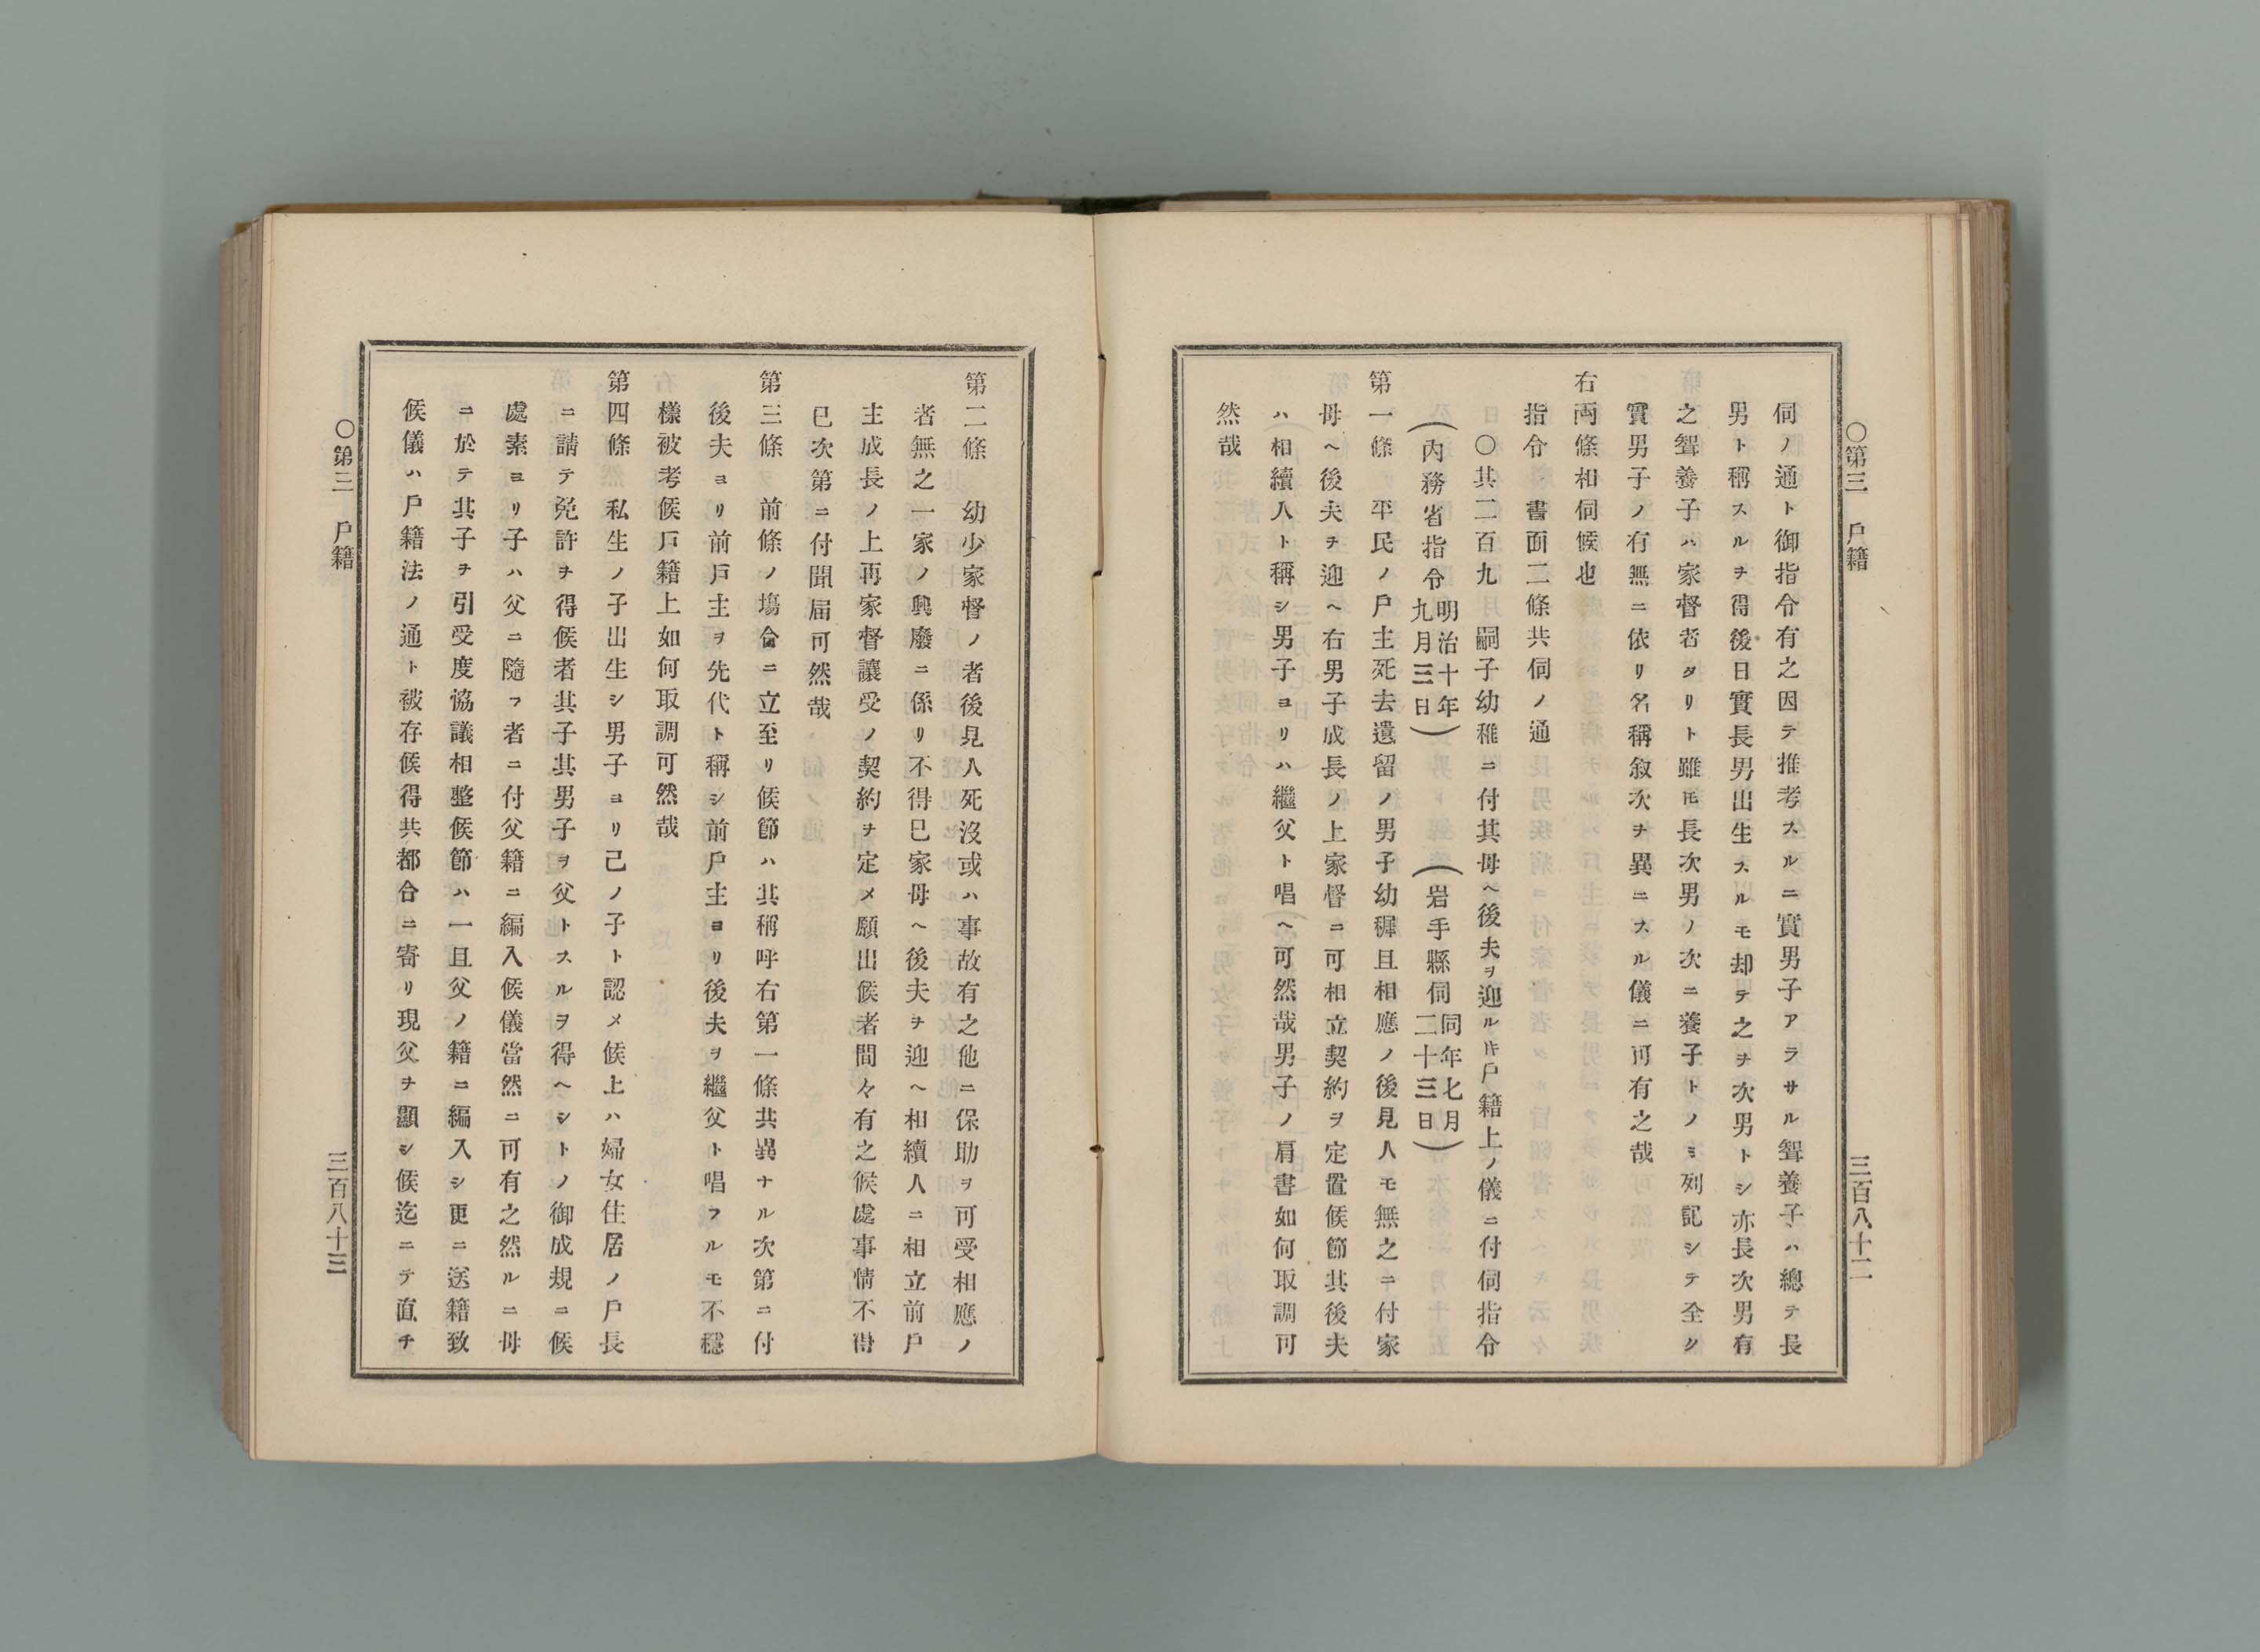 ○第三　戸籍　三百八十二
伺ノ通ト御指令有之因テ推考スルニ實男子アラサル聟養子ハ總テ長
男ト稱スルヲ得後日實長男出生スルモ却テ之ヲ次男トシ亦長次男有
之聟養子ハ家督者タリト雖𪜈長次男ノ次ニ養子トノミ列記シテ全ク
實男子ノ有無ニ依リ名稱敘次ヲ異ニスル儀ニ可有之哉
右両條相伺候也
指令　書面二條共伺ノ通
○其二百九　嗣子幼稚ニ付其母ヘ後夫ヲ迎ルㇳキ戸籍上ノ儀ニ付伺指令
（內務省指令明治十年九月三日）　（岩手縣伺同年七月二十三日）
第一條　平民ノ戸主死去遺留ノ男子幼穉且相應ノ後見人モ無之ニ付家
母ヘ後夫ヲ迎ヘ右男子成長ノ上家督ニ可相立契約ヲ定置候節其後夫
ハ相續人ト稱シ男子ヨリハ繼父ト唱ヘ可然哉男子ノ肩書如何取調可
然哉
第二條　幼少家督ノ者後見人死沒或ハ事故有之他ニ保助ヲ可受相應ノ
者無之一家ノ興廢ニ係リ不得已家母ヘ後夫ヲ迎ヘ相續人ニ相立前戸
主成長ノ上再家督讓受ノ契約ヲ定メ願出候者間々有之候處事情不得
已次第ニ付聞届可然哉
第三條　前條ノ塲合ニ立至リ候節ハ其稱呼右第一條共異ナル次第ニ付
後夫ヨリ前戸主ヲ先代ト稱シ前戸主ヨリ後夫ヲ繼父ト唱フルモ不穩
樣被考候戸籍上如何取調可然哉
第四條　私生ノ子出生シ男子ヨリ己ノ子ト認メ候上ハ婦女住居ノ戸長
ニ請テ免許ヲ得候者其子其男子ヲ父トスルヲ得ヘシトノ御成規ニ候
處素ヨリ子ハ父ニ隨フ者ニ付父籍ニ編入候儀當然ニ可有之然ルニ母
ニ於テ其子ヲ引受度協議相整候節ハ一旦父ノ籍ニ編入シ更ニ送籍致
候儀ハ戸籍法ノ通ト被存候得共都合ニ寄リ現父ヲ顯シ候迄ニテ直チ
○第三　戸籍　三百八十三